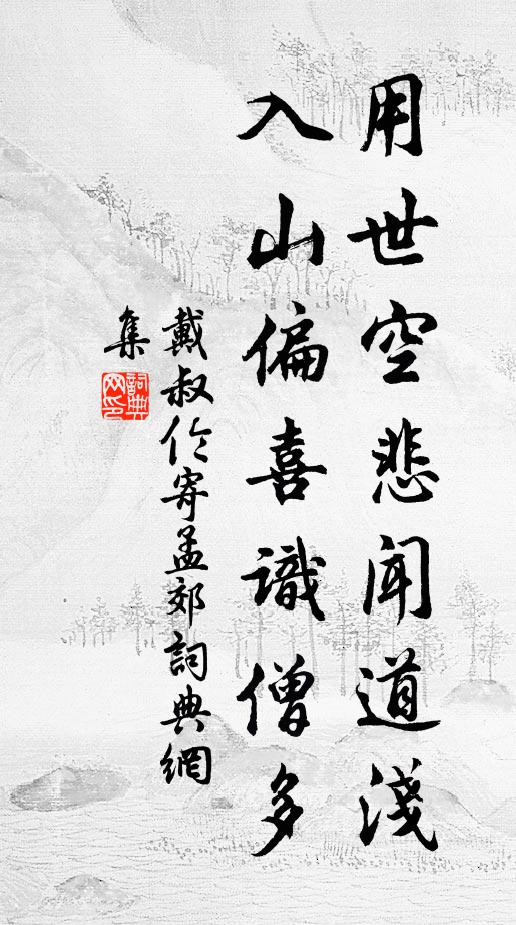 用世空悲聞道淺
入山偏喜識僧多
戴叔伦寄孟郊詞典網
集
詞典
网印